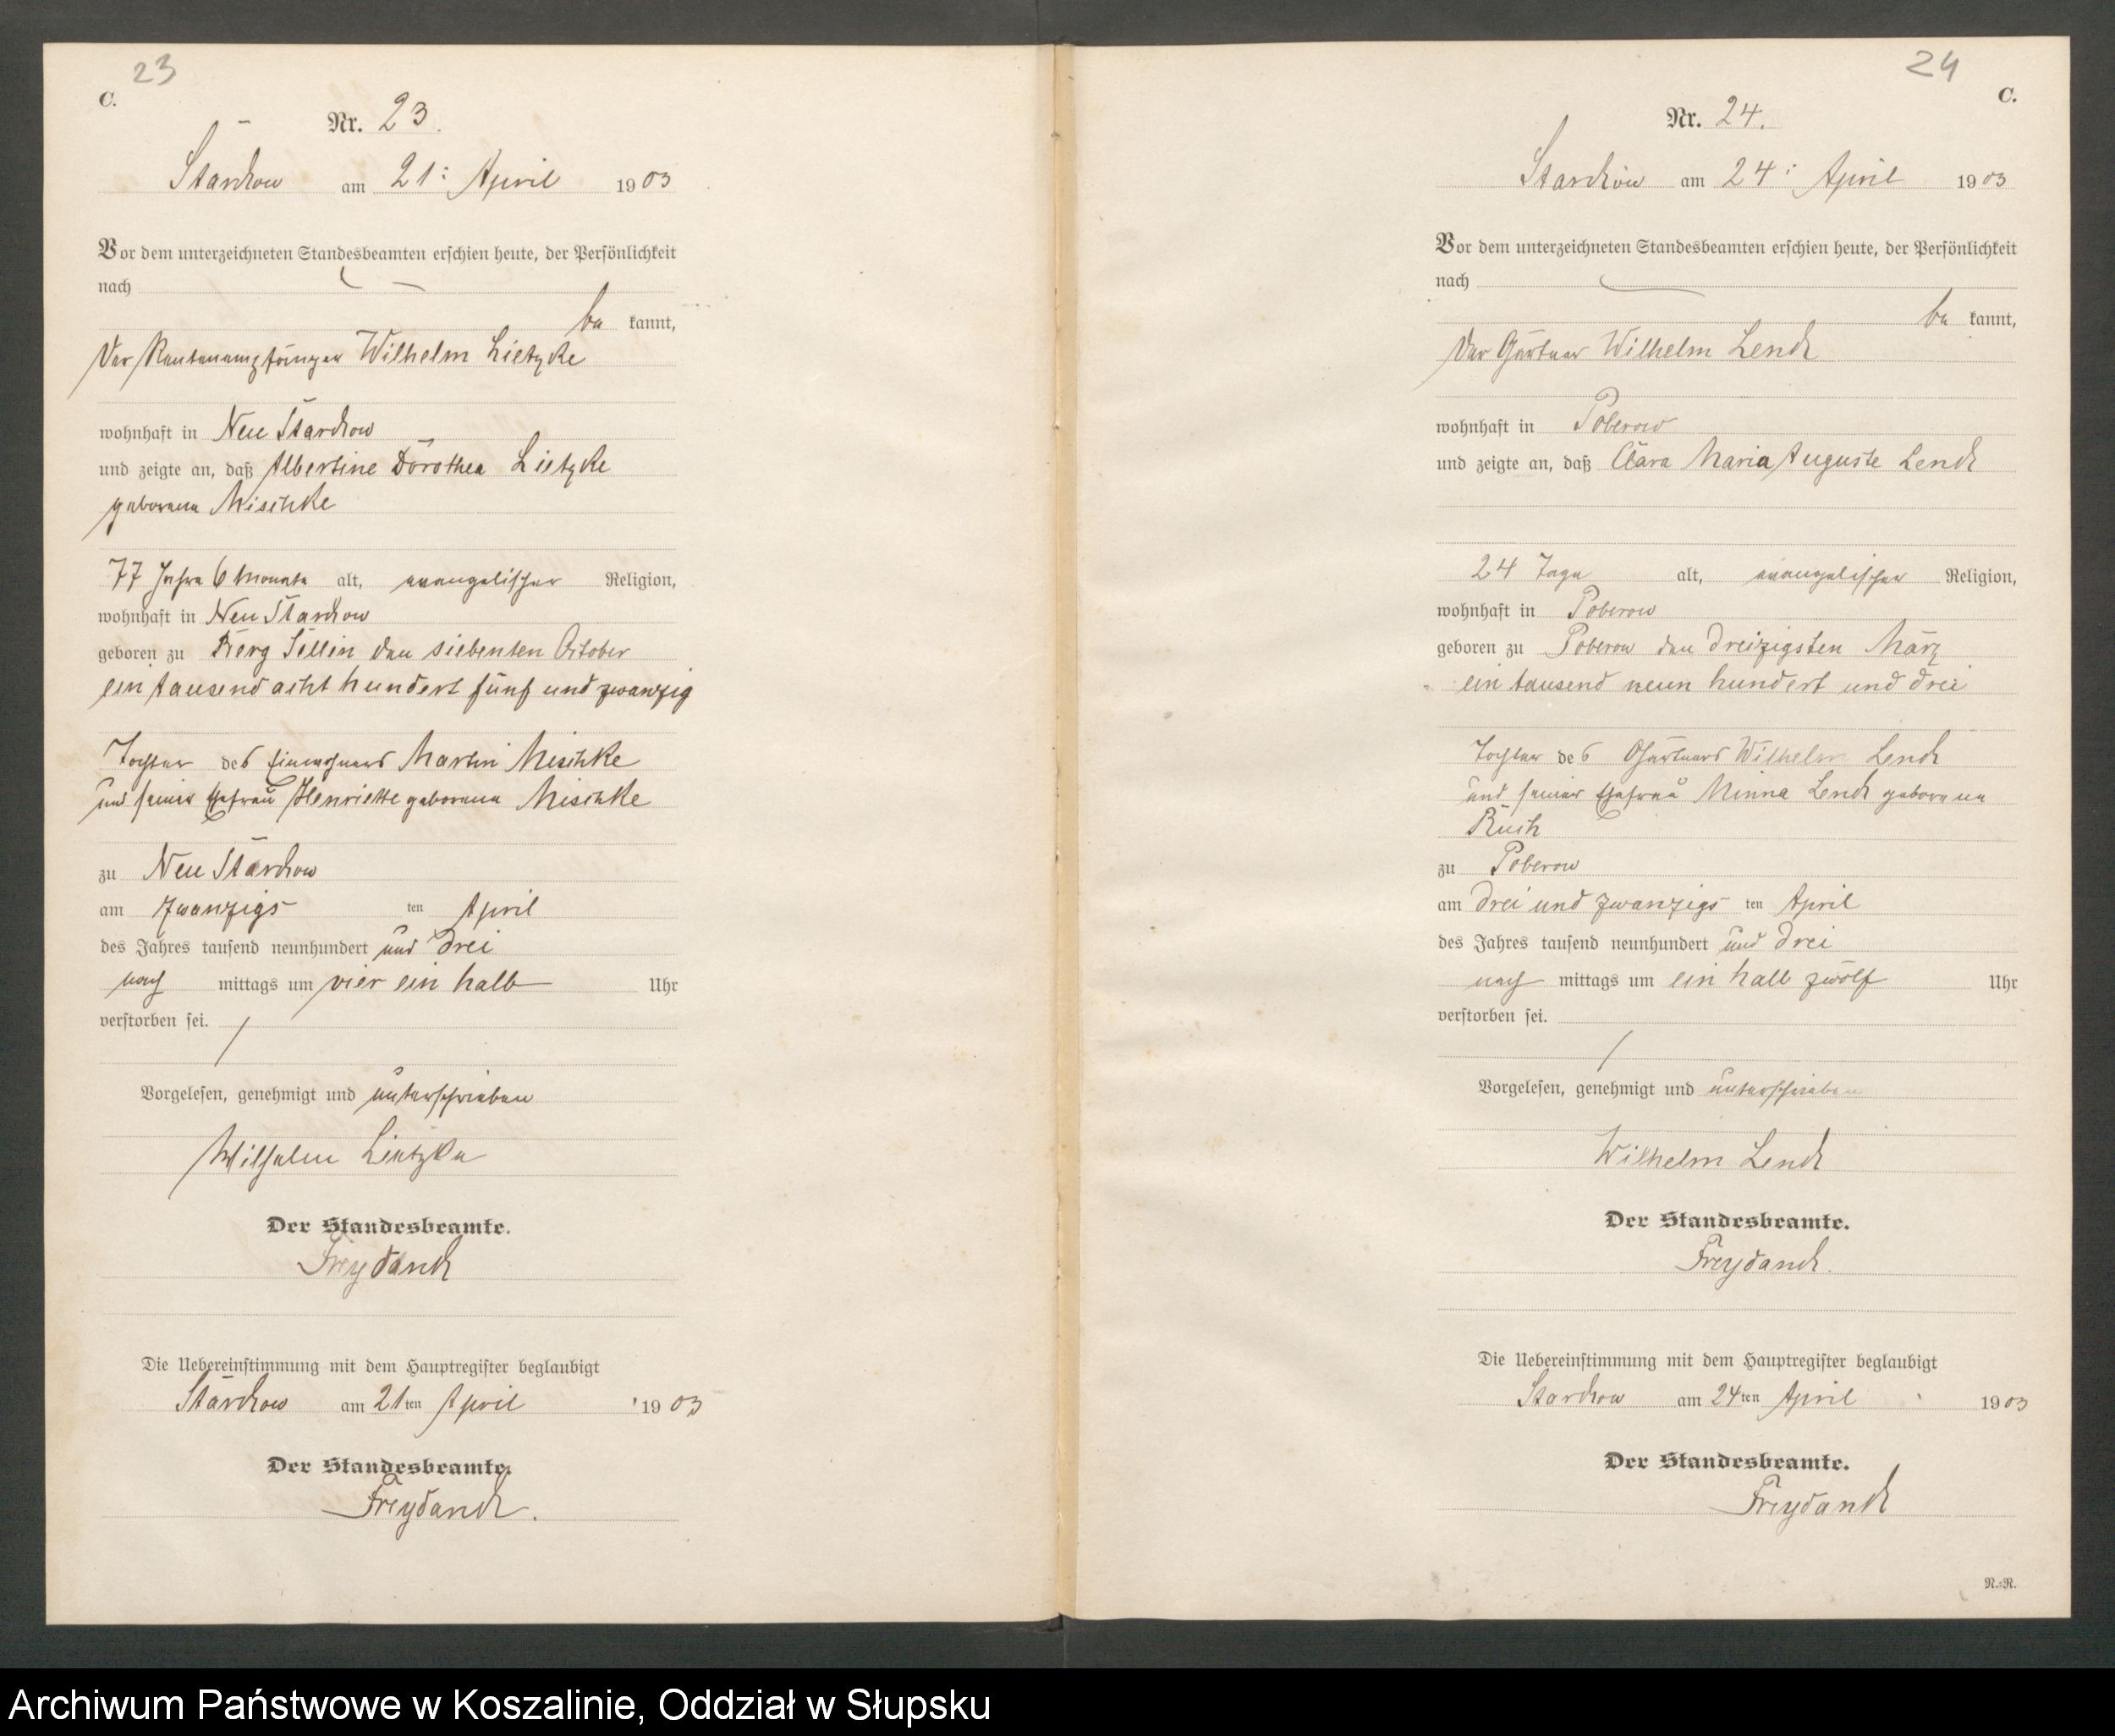 23
C.
Nr. 23.
Starckow am 21: April 1903
Vor dem unterzeichneten Standesbeamten erschien heute, der Persönlichkeit
nach
be kannt,
Der Rentenempfänger Wilhelm Lietzke
wohnhaft in Neu Starckow
und zeigte an, daß Albertine Dorothea Lietzke
geborene Mischke
77 Jahre 6 Monate alt, evangelischer Religion,
wohnhaft in Neu Starckow
geboren zu Berg Sellin den siebenten October
ein tausend acht hundert fünf und zwanzig
Tochter des Einwohners Martin Mischke
und seiner Ehefrau Henriette geborene Mischke
zu Neu Starckow
am zwanzigs ten April
des Jahres tausend neunhundert und drei
nach mittags um vier ein halb Uhr
verstorben sei.
Vorgelesen, genehmigt und unterschrieben
Wilhelm Lietzke
Der Standesbeamte.
Freydanck
Die Uebereinstimmung mit dem Hauptregister beglaubigt
Starckow am 21ten April 1903
Der Standesbeamte.
Freydanck.
24
C.
Nr. 24.
Starckow am 24: April 1903
Vor dem unterzeichneten Standesbeamten erschien heute, der Persönlichkeit
nach
be kannt,
Der Gärtner Wilhelm Lenck
wohnhaft in Poberow
und zeigte an, daß Clara Maria Auguste Lenck
24 Tage alt, evangelischer Religion,
wohnhaft in Poberow
geboren zu Poberow den dreizigsten März
ein tausend neun hundert und drei
Tochter des Gärtners Wilhelm Lenck
und seiner Ehefrau Minna Lenck geborene
Ruch
zu Poberow
am drei und zwanzigs ten April
des Jahres tausend neunhundert und drei
nach mittags um ein halb zwölf Uhr
verstorben sei.
Vorgelesen, genehmigt und unterschrieben
Wilhelm Lenck
Der Standesbeamte.
Freydanck.
Die Uebereinstimmung mit dem Hauptregister beglaubigt
Starckow am 24ten April 1903
Der Standesbeamte.
Freydanck
N.=N.
Archiwum Państwowe w Koszalinie, Oddział w Słupsku